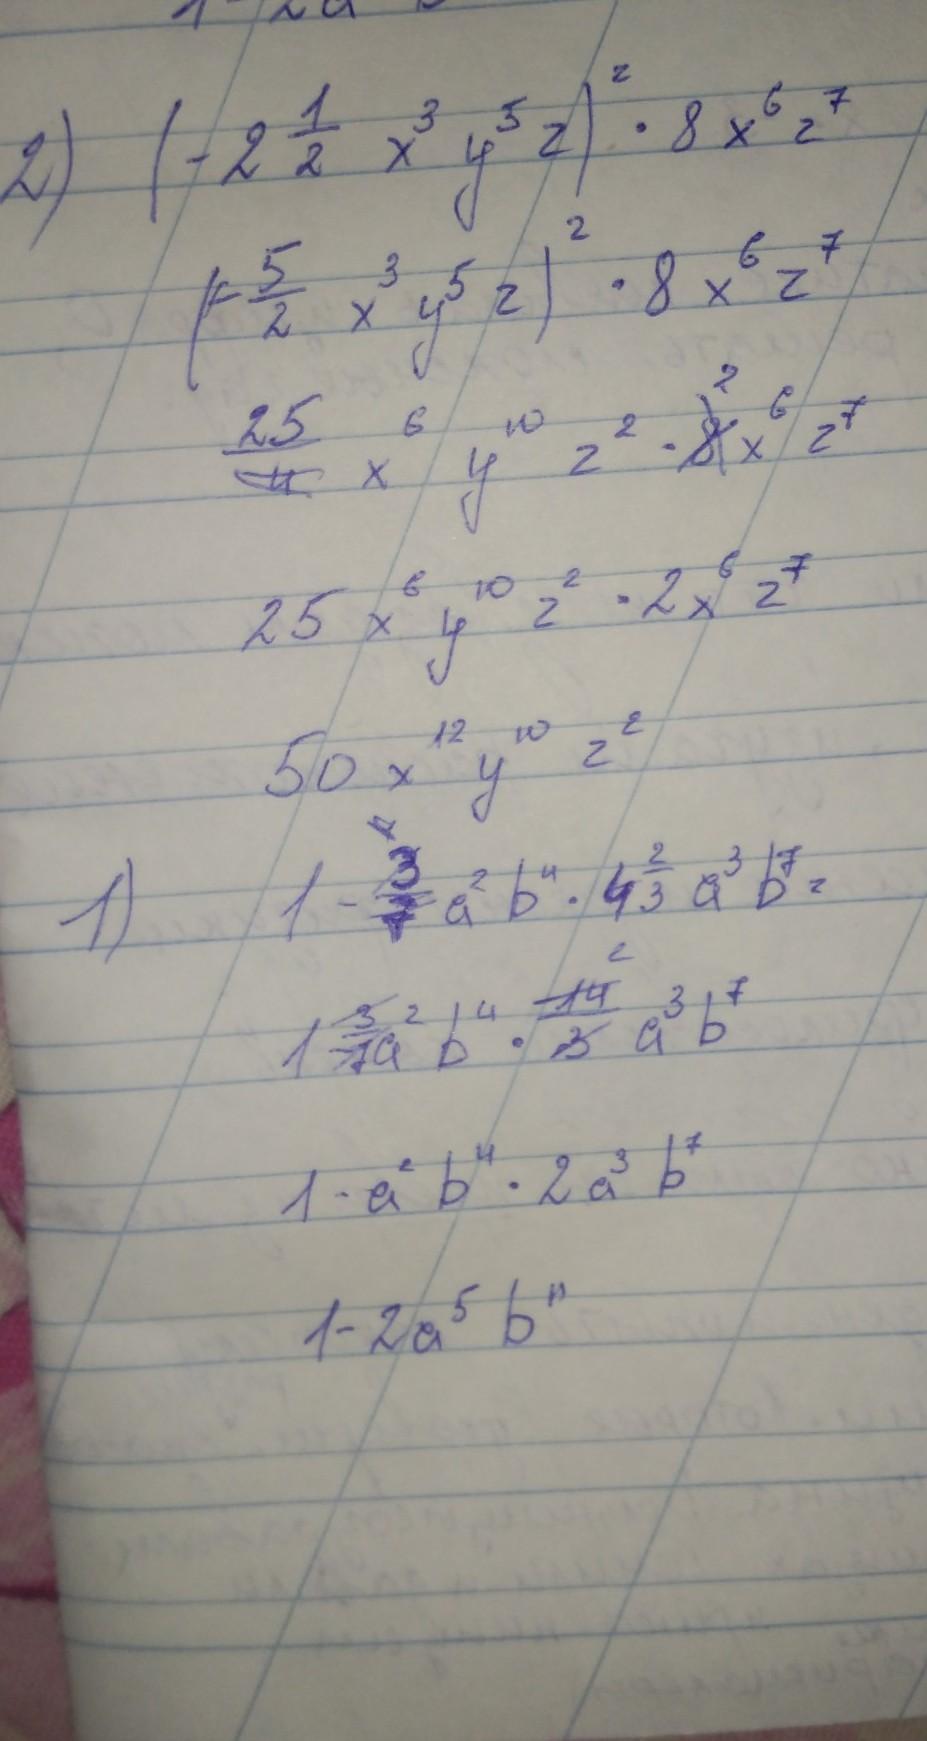 2) (-2 1/2 x³ y⁵ z)² · 8x⁶ z⁷
(-5/2 x³ y⁵ z)² · 8x⁶ z⁷
25/4 x⁶ y¹⁰ z² · 8² x⁶ z⁷
25 x⁶ y¹⁰ z² · 2x⁶ z⁷
50 x¹² y¹⁰ z²
1) 1 - 3/7 a² b⁴ · 4 2/3 a³ b⁷ =
1 3/7 a² b⁴ · 14/3 ² a³ b⁷
1 - a² b⁴ · 2a³ b⁷
1 - 2a⁵ b¹¹